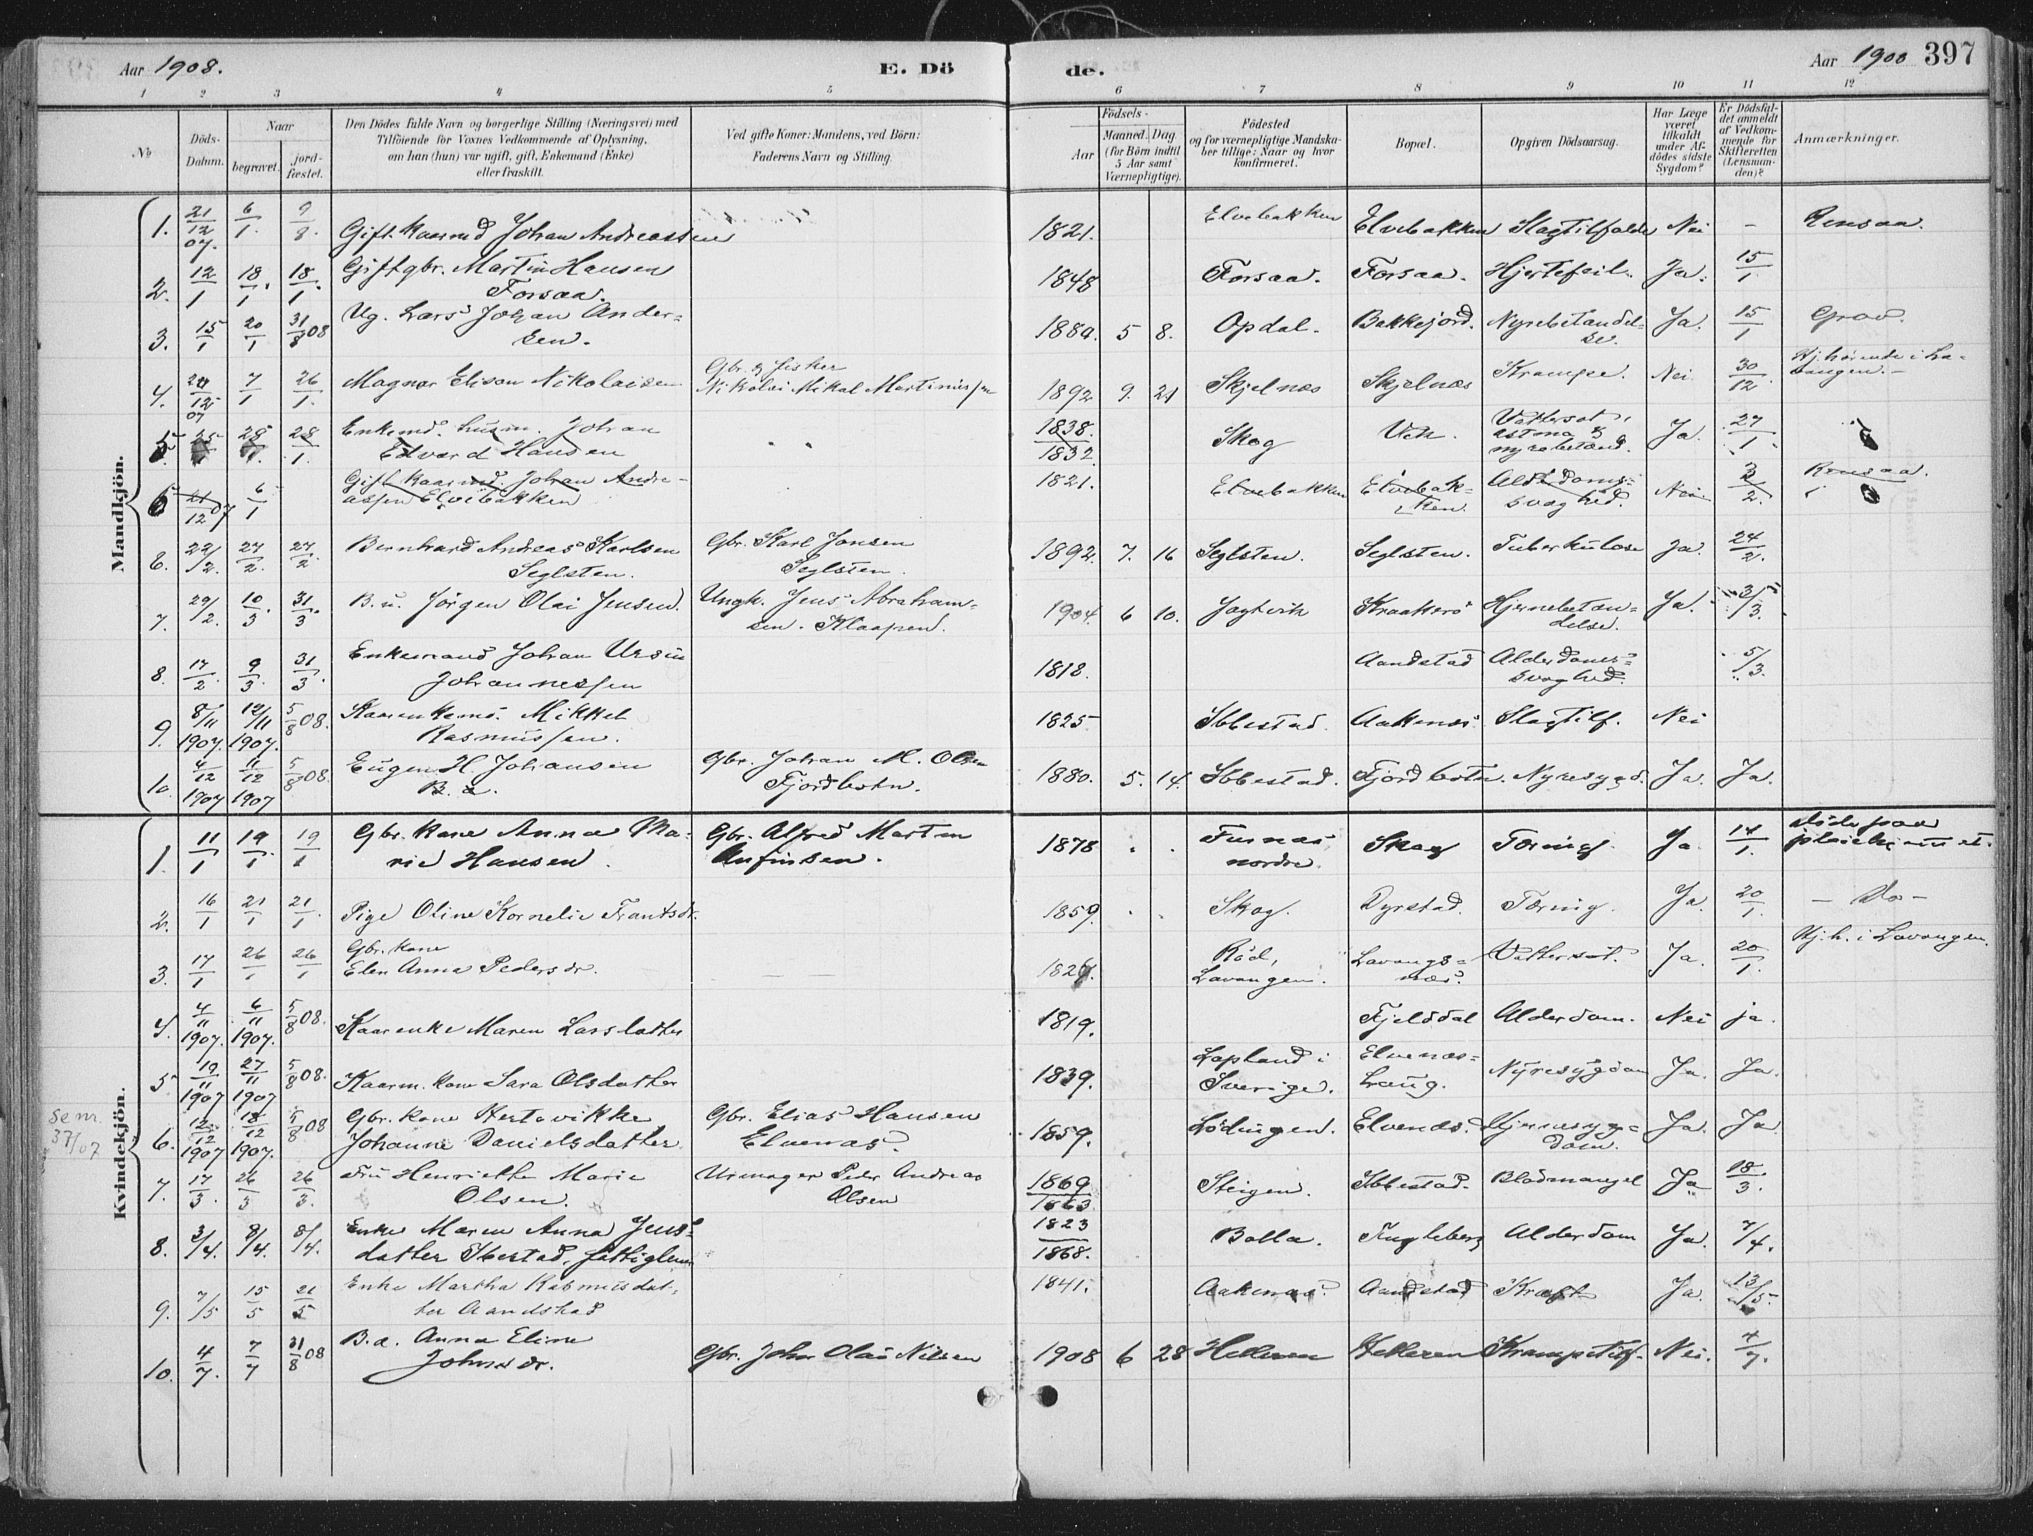 Aar 1908.
E. Dö
de.
Aar 1900
397
1 2 3 4 5 6 7 8 9 10 11 12
No
Döds-Datum.
Naar
begravet.
jord-fæstet.
Den Dödes fulde Navn og borgerlige Stilling (Næringsvei) med
Tilföiende for Voxnes Vedkommende af Oplysning,
om han (hun) var ugift, gift, Enkemand (Enke)
eller fraskilt.
Ved gifte Koner: Mandens, ved Börn:
Faderens Navn og Stilling.
Födsels-
Aar
Maaned. Dag
(for Börn indtil
5 Aar samt
Værnepligtige).
Födested
og for værnepligtige Mandska-
ber tillige: Naar og hvor
konfirmeret.
Bopæl.
Opgiven Dödsaarsag.
Har Læge
været
tilkaldt
under Af-
dödes sidste
Sygdom?
Er Dödsfal-
det anmeldt
af Vedkom-
mende for
Skifteretten
(Lensman-
den)?
Anmærkninger.
Mandkjön.
1. 21/12 07. 6/1. 9/8. Gift kaarmd Johan Andreassen 1821. Elvebakken Elvebakken Slagtilfælde Nei – Rensaa.
2. 12/1 18/1. 18/1. Gift gbr. Martin Hansen
Forsaa. 1848 Forsaa. Forsaa. Hjertefeil. Ja. 15/1
3. 15/1 20/1 31/8 08 Ug. Lars Johan Ander=
sen. 1880. 5 8. Opdal. Bakkejord. Nyrebetændel-
se. Ja. 15/1 Grov.
4. 24/12 07 7/1 26/1. Magnor Elison Nikolaisen Gbr. og fisker
Nikolai Mikal Martinussen 1892 9. 21 Skjelnæs Skjelnæs Krampe. Nei. 30/12. Hj.hörende i La-
vangen.-
5 28/1. Enkemd. husm. Johan
Edvard Hansen 1838.
1832 Skog Vik. Vattersot,
astma og
nyrebetænd. Ja. 27/1.
21/12 07 6/1 Gift kaarmd. Johan Andre-
assen Elvebakken 1821. Elvebakken Elvebak=
ken. Alderdoms-
svaghed. Nei 3/2. Rensaa.
6. 22/2. 27/2. 27/2. Bernhard Andreas Karlsen
Seglsten. Gbr. Karl Jonsen
Seglsten. 1892. 7. 16 Seglsten. Seglsten. Tuberkulose Ja. 24/2.
7. 29/2. 10/3. 31/3. B.u. Jörgen Olai Jensen. Ungk. Jens Abraham-
sen. Klaapen. 1904. 6 10. Jagtvik Kraakerö Hjernebetæn-
delse. Ja. 3/3.
8. 17/2. 9/3. 31/3. Enkemand Johan Ursin
Johannessen 1818. Aandstad Alderdoms=
svaghed. 5/3.
9. 8/11 1907. 12/11 1907. 5/8 08. Kaarenkemd. Mikkel
Rasmussen. 1825 Ibbestad. Aakenæs Slagtilf. Nei
10. 4/12 1907 11/12 1907 5/8 08. Eugen H. Johansen
B. æ. Gbr. Johan M. Olsen
Fjordbotn. 1880. 5. 14. Ibbestad. Fjordbotn. Nyresygd. Ja Ja.
Kvindekjön.
1. 11/1 19/1. 19/1 Gbr. kone Anna Ma-
rie Hansen. Gbr. Alfred Martin
Anfinsen. 1878 . . Furnæs,
nordre. Skog Tæring. Ja. 14/1. döde paa
pleiehjemmet.
2. 16/1 21/1 21/1. Pige Oline Kornelie Frantsdr. 1859. . . Skog. Dyrstad. Tæring. Ja. 20/1. – Do –
3. 17/1 26/1 26/1 Gbr. kone
Elen Anna Pedersdr. 1826. Röd,
Lavangen. Lavangs=
næs. Vattersot. Ja. 20/1. Hj.h. i Lavangen.
4. 4/11 1907. 6/11 1907. 5/8 08. Kaarenke Maren Larsdatter 1819. Fjelddal Alderdom. Nei ja.
5 19/11 1907 27/11 1907 5/8 08. Kaarm. kone Sara Olsdatter 1839. Lapland i
Sverige. Elvenæs=
Laug. Nyresygdom Ja. Ja.
se nr.
37/07
6. 12/12 1907 18/12 1907. 5/8 08 Gbr. kone Hertevikke
Johanne Danielsdatter Gbr. Elias Hansen
Elvenæs. 1859. Lödingen. Elvenæs. Hjernesyg=
dom. Ja. Ja.
7. 17/3. 26/3 26/3. Fru Henriette Marie
Olsen. Urmager Peder Andreas
Olsen 1869
1863 Steigen. Ibbestad. Blodmangel Ja 18/3.
8. 3/4. 8/4. 8/4. Enke Maren Anna Jens-
datter Ibestad, fattiglem 1823
1868. Bolla. Engleberg Alderdom Ja. 7/4.
9. 7/5 15/5 21/5 Enke Martha Rasmusdat-
ter Aandstad 1841. Aakenæs. Aandstad Kræft Ja. 13/5.
10. 4/7. 7/7 31/8 08 B.æ. Anna Eline
Johnsdr. Gbr. John Olai Nilsen 1908 6 28 Helleren Helleren Krampetilf. Nei. 4/7.